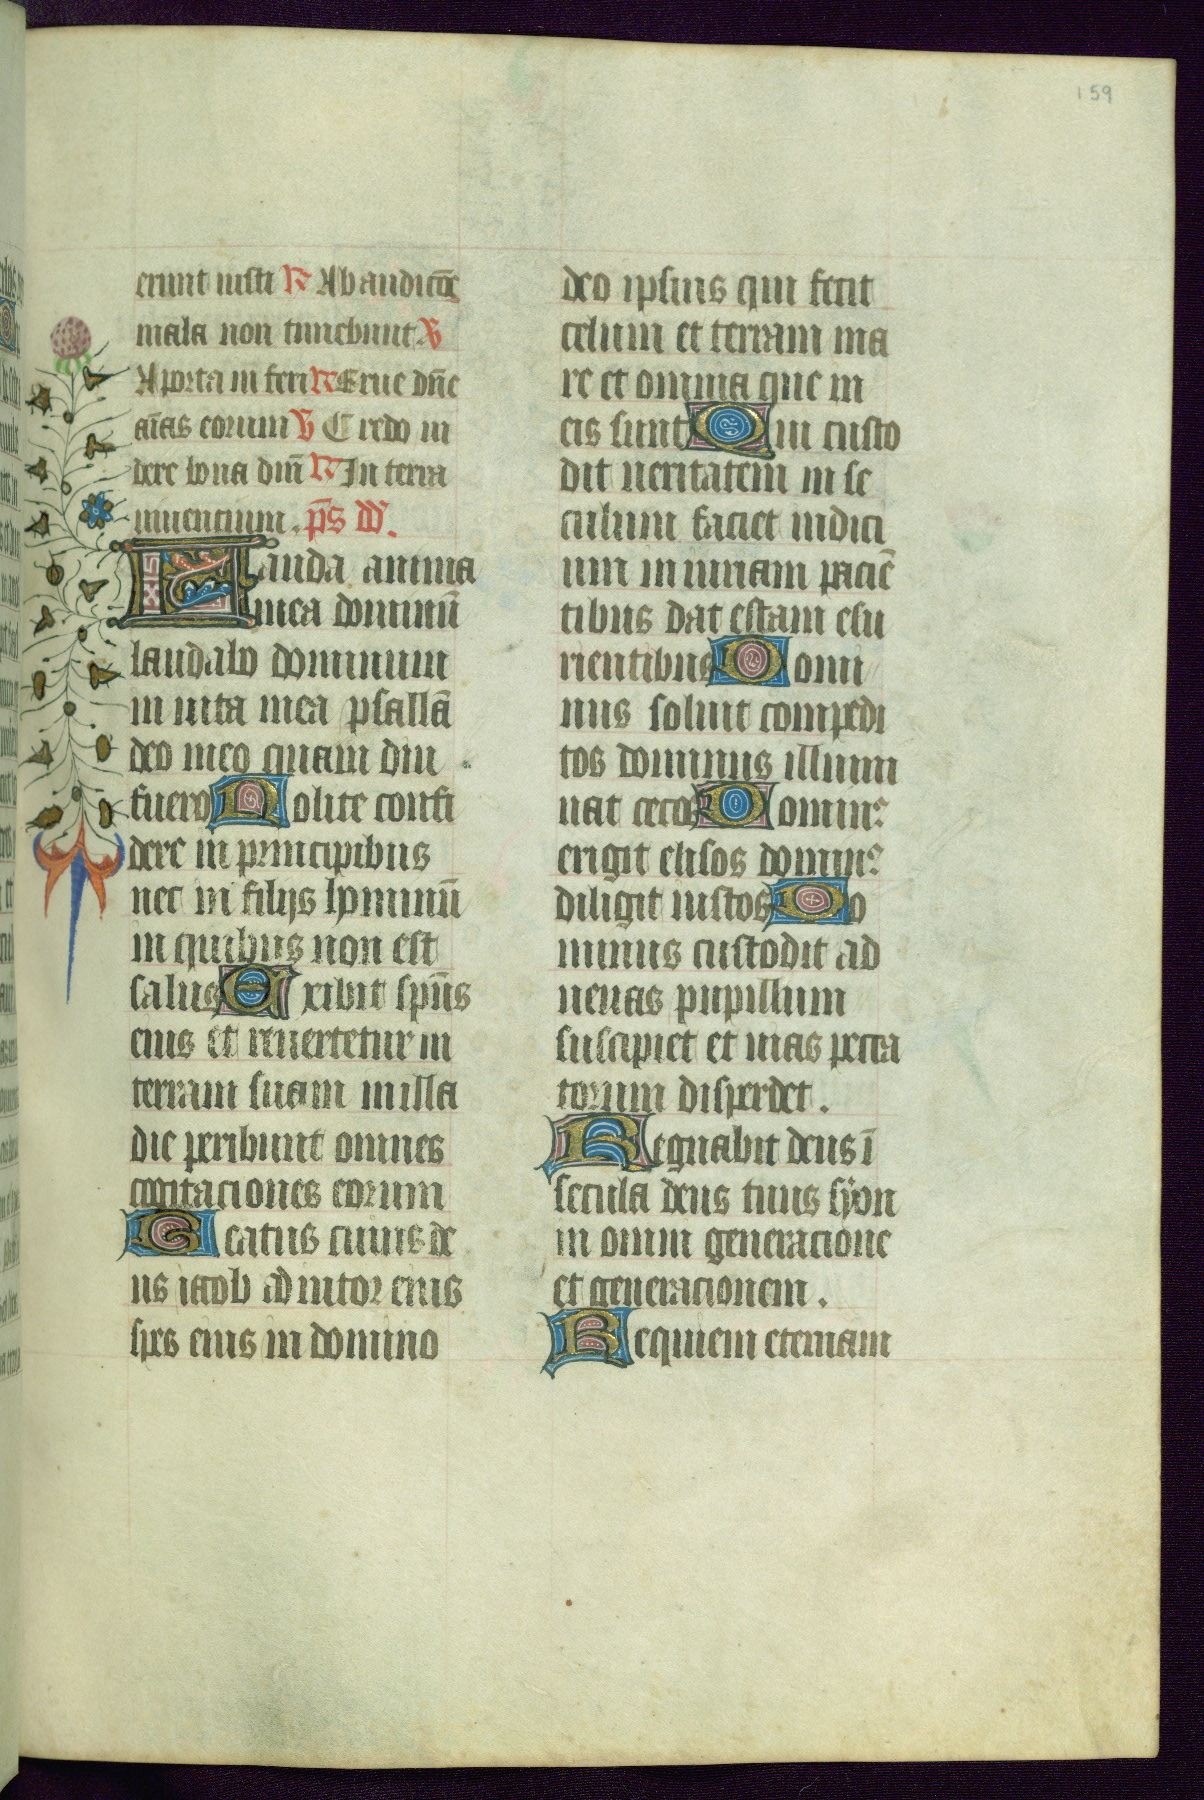 159
erunt iusti ℟ Ab audicōe
mala non timebunt ℣
A porta inferi ℟ Erue dn̄e
aīas eorum ℣ Credo ui
dere bona dn̄i ℟ In terra
uiuentium. ps̄ dd̄.
Lauda anima
mea dominū
laudabo dominum
in uita mea psallā
deo meo quam diu
fuero Nolite confi
dere in principibus
nec in filijs hominū
in quibus non est
salus Exibit sp̄us
eius et reuertetur in
terram suam in illa
die peribunt omnes
cogitaciones eorum
Beatus cuius de
us iacob adiutor eius
spes eius in domino
deo ipsius qui fecit
celum et terram ma
re et omnia que in
eis sunt Qui custo
dit ueritatem in se
culum faciet iudici
um iniuriam paciē
tibus dat escam esu
rientibus Domi
nus soluit compedi
tos dominus illumi
nat cecos Dominꝰ
erigit elisos dominꝰ
diligit iustos Do
minus custodit ad
uenas pupillum
suscipiet et uias pecca
torum disperdet.
Regnabit deus ī
secula deus tuus syon
in omni generacione
et generacionem.
Requiem eternam